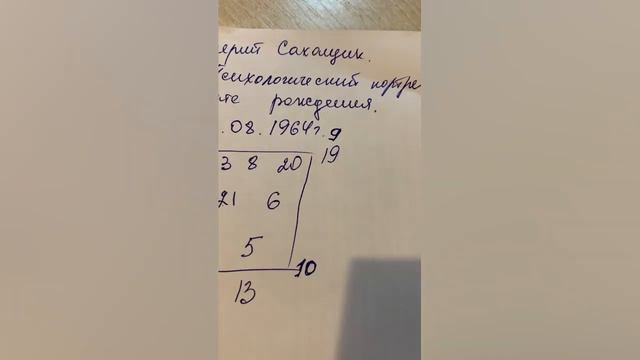 ерий Сахащик.
Психологический портре
те рождения.
.08.1964г. 9
3 8 20 19
21 6
5
10
13